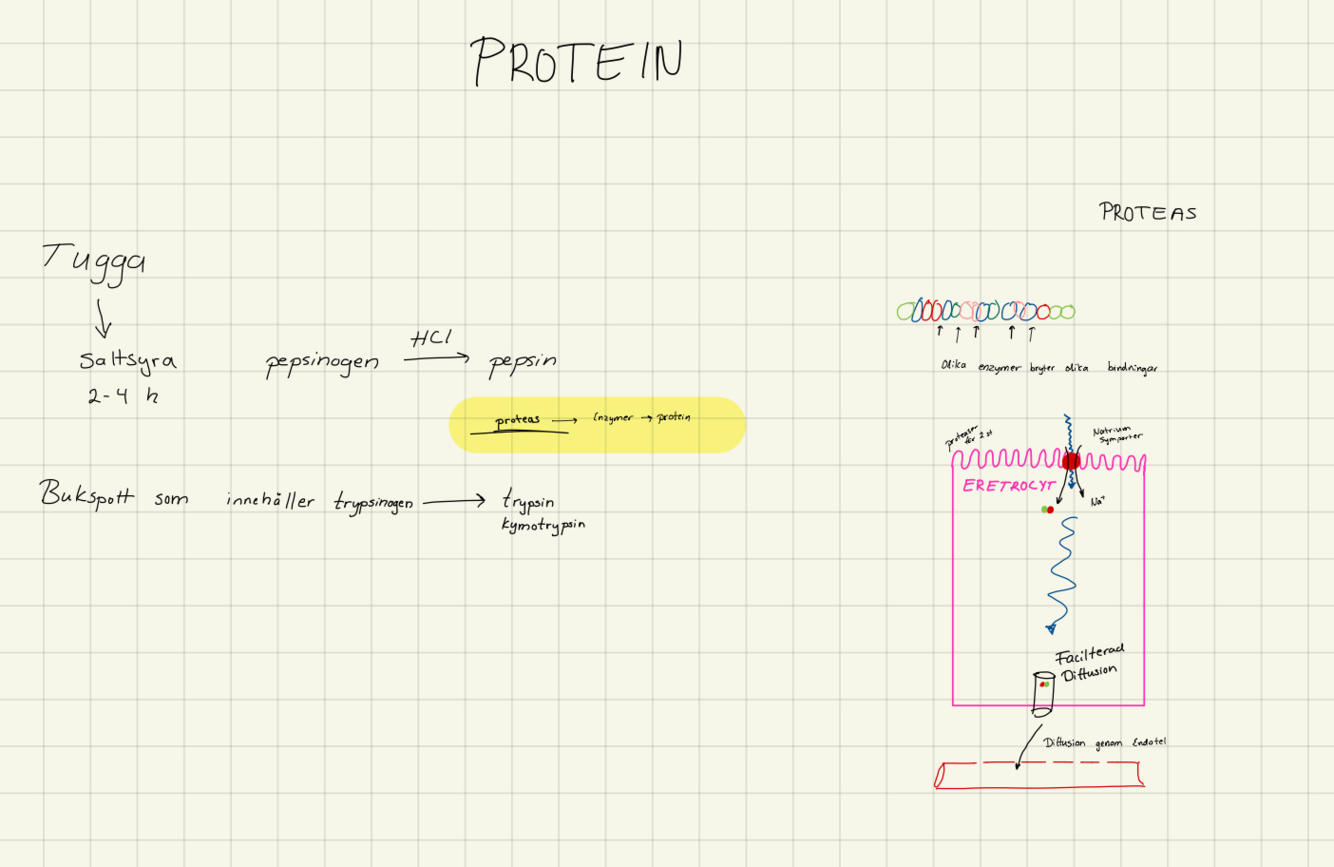 PROTEIN
PROTEAS
Tugga
Saltsyra
2-4 h
pepsinogen HCl pepsin
proteas → Enzymer → protein
Bukspott som innehåller trypsinogen → trypsin
kymotrypsin
Olika enzymer bryter olika bindningar
för 2 st
Natrium
Symporter
ERETROCYT
Na+
Facilterad
Diffusion
Diffusion genom Endotel